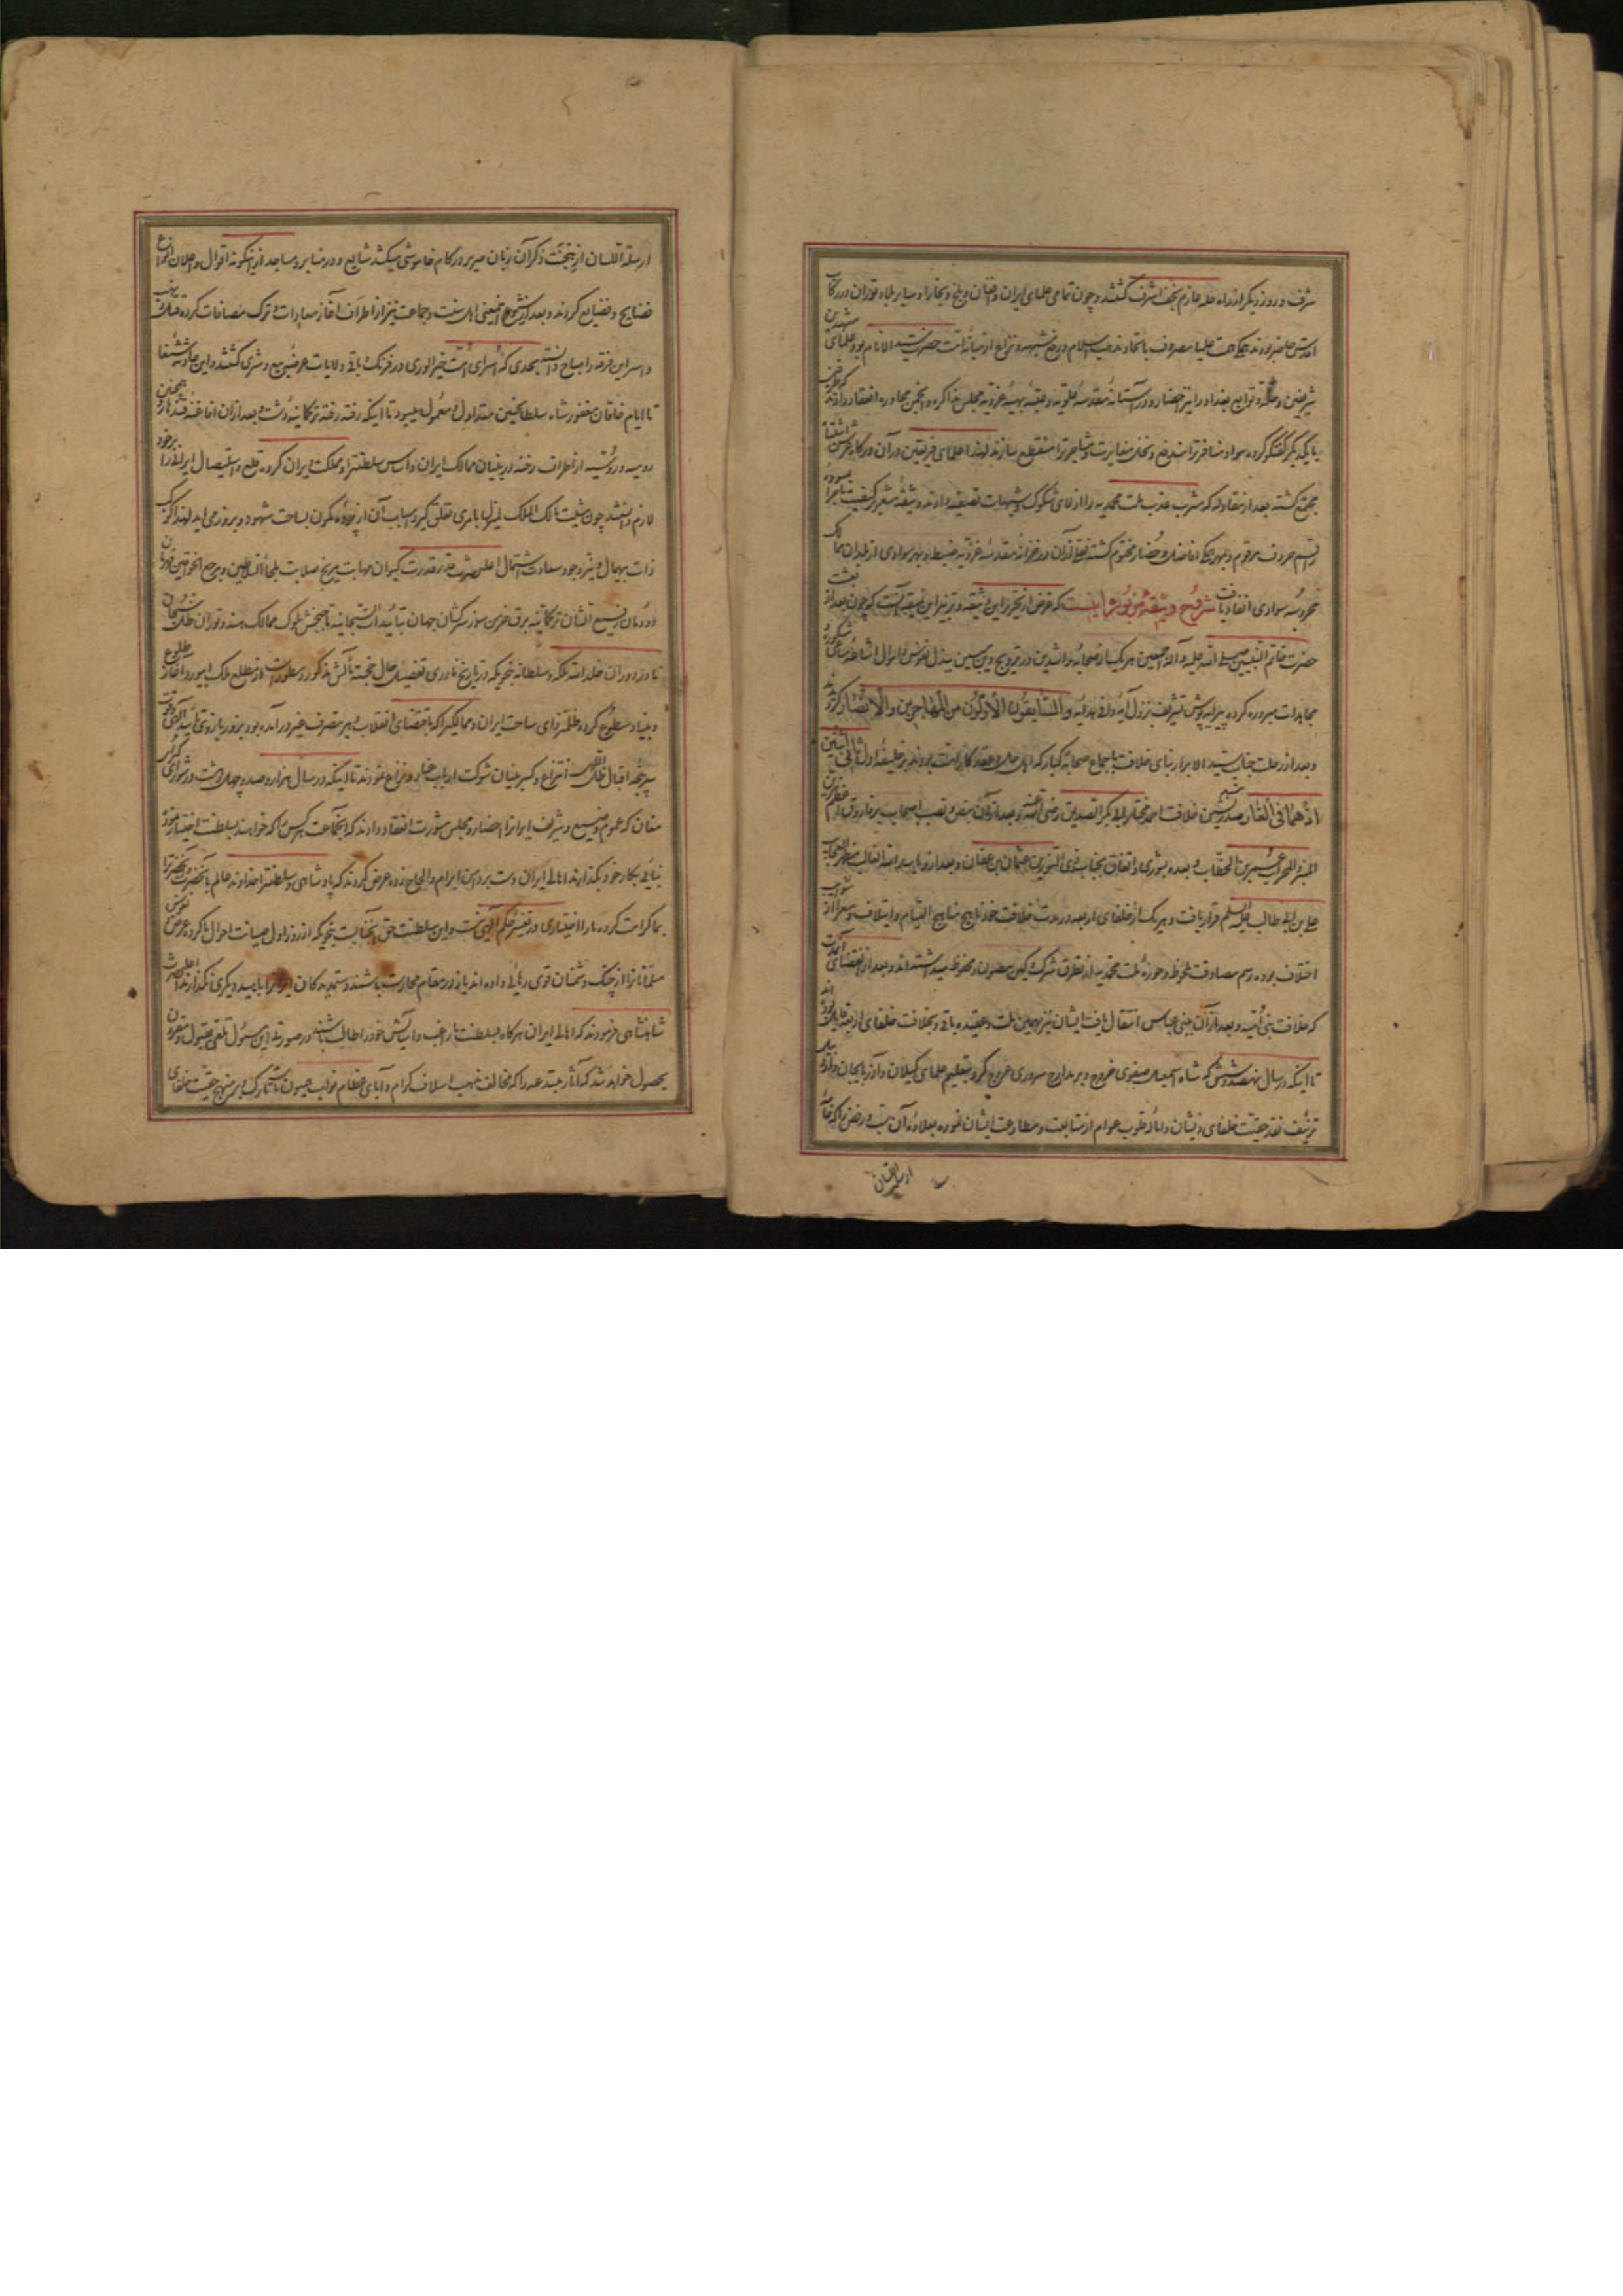 شرف و روز دیگر از راه حله عازم نجف اشرف گشتند و چون تمامی علمای ایران و افغان و بلخ و بخارا و سایر بلاد توران در رکاب
اقدس حاضر بودند همگی همت علیا مصروف باتحاد مذهب اسلام و رفع شبهه و نزاع از میانه امت حضرت سید الانام بود علمای مشهدین
شریفین و حله و توابع بغداد را نیز احضار و در آستانه مقدسه علویه و عتبه بهیه غرویه مجلس مذاکره و انجمن محاوره انعقاد دادند که طرفین
با یکدیگر گفتگو کرده مواد منافرت را مندفع و نخل مغایرت و مشاجرت را منقطع سازند لهذا علمای فریقین در آن درگاه عرش اشتباه
مجتمع گشته بعد از مقاوله که مشرب عذب ملت محمدیه را از لای شکوک و شبهات تصفیه دادند وثیقه مشعر بر کیفیت ماجرا مسوده
رقم حروف مرقوم و بمهر همگی افاضل و حضار مختوم گشته نقلی از آن در خزانه مقدسه غرویه ضبط و بهر سوادی از بلدان ممالک
محروسه سوادی انفاد یافت شرح وثیقه مزبوره اینست که غرض از تحریر این وثیقه و ترتیب این نمیقه آنست که چون بعد از بعثت
حضرت خاتم النبیین صلی الله علیه و آله اجمعین هر یک از صحابه راشدین در ترویج دین مبین ببذل نفوس و اموال اشاعه مساعی مشکوره
مجاهدات مبروره کرده پیرایه پوش تشریف نزول آیه وافی هدایه والسابقون الاولون من المهاجرین والانصار گردیدند
و بعد از رحلت جناب سید الابرار بنای خلافت باجماع صحابه کبار که اهل حل و عقد کار امت بودند بر خلیفه اول ثانی اثنین
اذ هما فی الغار صدر نشین خلافت احمد مختار ابی بکر الصدیق رضی الله عنه و بعد از آن بنص و نصب اصحاب بر فاروق اعظم مزین
المنبر والمحراب عمر بن الخطاب و بعده بشوری و اتفاق بجناب ذی النورین عثمان بن عفان و بعد از او باسد الله الغالب مظهر العجایب
علی بن ابی طالب علیه السلم قرار یافت و هر یک از خلفای اربعه در مدت خلافت خود ناهج مناهج التیام و ایتلاف و معرا از شوایب
اختلاف بوده رسم مصادقت ملحوظ و حوزه ملت محمدیه از تطرق شرک و کین مصون و محفوظ میداشته اند و بعد از انقضای آنمدت
که خلافت ببنی امیه و بعد از آن ببنی عباس انتقال یافت ایشان نیز بهمین ملت و عقیده باقی و بخلافت خلفای اربعه قایل بوده اند
تا اینکه در سال نهصد و شش که شاه اسمعیل صفوی خروج و بر مدارج سروری عروج کرد بتعلیم علمای گیلان و آذربایجان و اردبیل
تزییف نقد حقیت خلفای ذیشان و امالة قلوب عوام از متابعت و مطاوعت ایشان نموده بعلاوه آن سب و رفض را که قاف
ارسلة اللسان
ارسلة اللسان از نتیجت ذکر آن زبان صریر در کام خاموشی میکشد شایع و در منابر و مساجد از اینگونه اقوال و اعلان انواع
فضایح و فضایع کردند و بعد از شیوع اینمعنی اهل سنت و جماعت نیز از اطراف آغاز معادات و ترک مصافات کرده قتل و نهب
و اسر این فرقه را مباح دانسته بحدی که اسرای امت خیر الوری در فرنگ و باقی ولایات عرضه بیع و شری گشتند و این حادثه شنعا
تا ایام خاقان مغفور شاه سلطان حسین متداول و معمول میبود تا اینکه رفته رفته ترکمانیه دشت و بعد از آن افاغنه قندهار و همچنین
رومیه و روسیه از اطراف رخنه در بنیان ممالک ایران و اساس سلطنت را و مملکت ایران کرده قلع و استیصال ایران را بر خود
لازم دانستند چون مشیت مالک الملک لم یزلی بامری تعلق گیرد اسباب آن از پرده مکمون بساحت شهود و بروز می آید لهذا کوکب
ذات بیهمال و نیر وجود سعادت اشتمال اعلیحضرت قدر قدرت کیوان مهابت مریخ صلابت ملجأ السلاطین و مرجع الخواقین
دودمان رفیع الشان ترکمانیه برق خرمن سوز سرکشان جهان بتاییدات سبحانیه تاجبخش ملوک ممالک هند و توران ظل سبحان
نادر دوران خلد الله ملکه و سلطانه بنحویکه در تاریخ نادری تفصیل حال خجسته مآلش مذکور و مسطور است از مطلع ملک ابیورد آغاز طلوع
و بنیاد سطوع کرده ظلمت زدای ساحت ایران و ممالکیرا که باقتضای انقلاب دهر بتصرف غیر در آمده بود بزور بازوی تأیید الهی و قوت
سرپنجه اقبال ظل اللهی انتزاع و کسر بنیان شوکت ارباب عناد و نزاع نمودند تا اینکه در سال هزار و صد و چهل و هشت در شورای کبرای
مغان که عموم وضیع و شریف ایران را احضار و مجلس مشورت انعقاد دادند که آنجماعت هر کس را که خواهند بسلطنت اختیار نموده
بنایی بکار خود بگذارند اهالی ایران دست بر دامن ابرام و الحاح زده عرض کردند که پادشاهی و سلطنت را خداوند عالم بآنحضرت و آنحضرت را
بما کرامت کرده ما را اختیاری در تغییر حکم الهی نیست و این سلطنت حق آنجناب است بنحویکه از روز اول صیانت احوال ما کرده عرض و نفوس
مسلمانان را از چنگ دشمنان قوی رهایی داده اند باز در مقام حمایت باشند و ستمدیدگان ایرانرا بامید دیگری نگذارند اعلیحضرت
شاهنشاهی فرمودند که اهالی ایران هرگاه بسلطنت ما راغب و آسایش خود را طالب باشند در صورتی این مسئول تلقی بقبول و مقرون
بحصول خواهد شد که آثار مبتدعه را که مخالف مذهب اسلاف کرام و آبای عظام نواب همیون ماست تارک و بر منهج حقیت خلفای